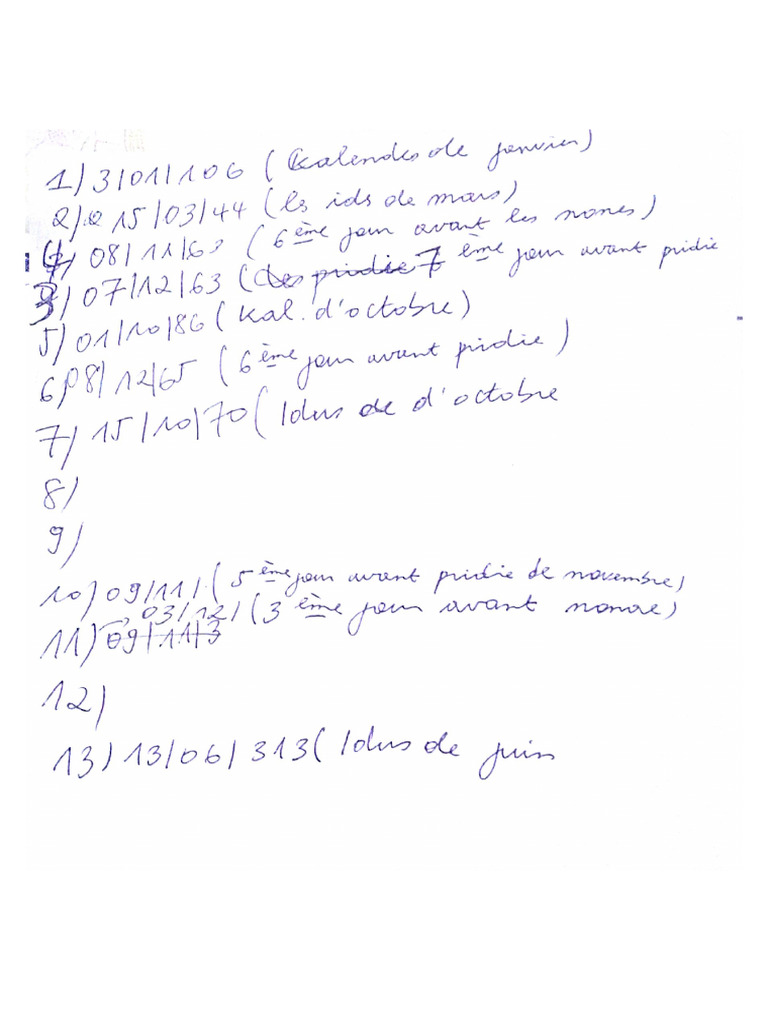 1) 3/01/106 (Kalendes de janvier)
2) 15/03/44 (les ids de mars)
4) 08/11/63 (6ème jour avant les nones)
3) 07/12/63 (des pridie 7 ème jour avant pridie
5) 01/10/86 (Kal. d'octobre)
6) 08/12/65 (6ème jour avant pridie)
7) 15/10/70 (Idus de d'octobre
8)
9)
10) 09/11/ (5ème jour avant pridie de novembre)
03/12/ (3ème jour avant nonae)
11) 09/11/3
12)
13) 13/06/313 (Idus de juin